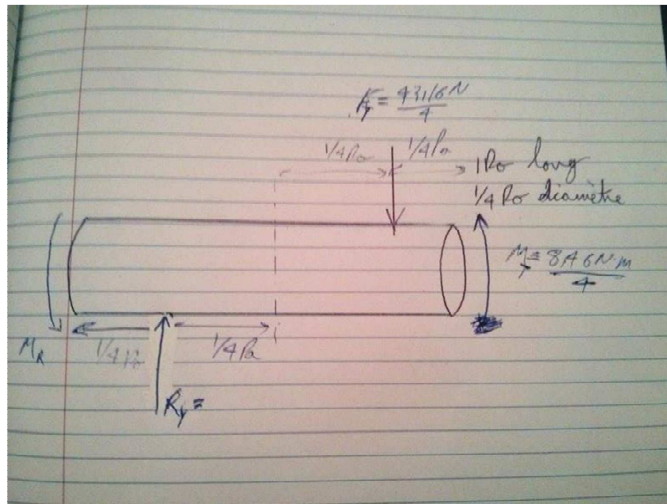 Fy = 431,6N
4
1/4 Po 1/4 Po 1Po long
1/4 Po diamètre
My = 8,46 N.m
4
MR 1/4 Po 1/4 Po
Ry =